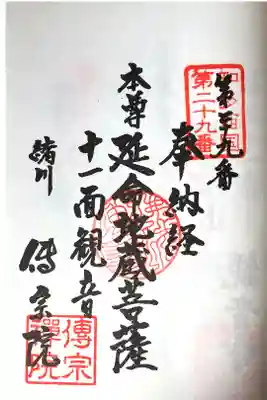 第二十九番
第二十九番
奉納経
本尊 延命地蔵菩薩
十一面観音
緒川 傳宗院
傳宗禪院